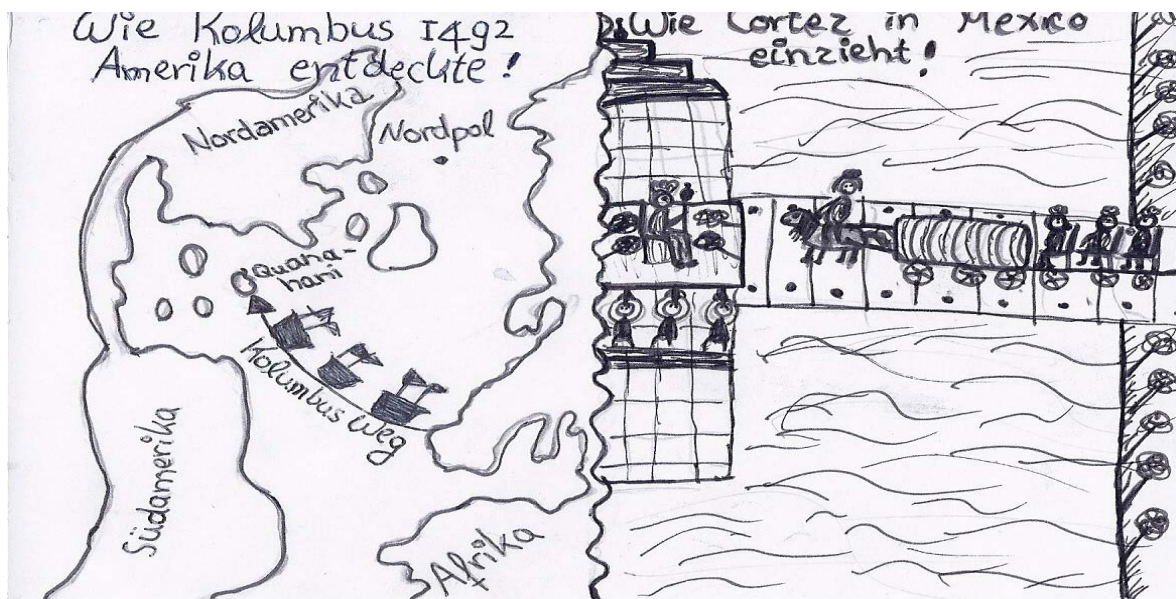 Wie Kolumbus 1492
Amerika entdeckte!
Nordamerika
Nordpol
Quana-
hani
Kolumbus Weg
Südamerika
Afrika
Wie Cortez in Mexico
einzieht!